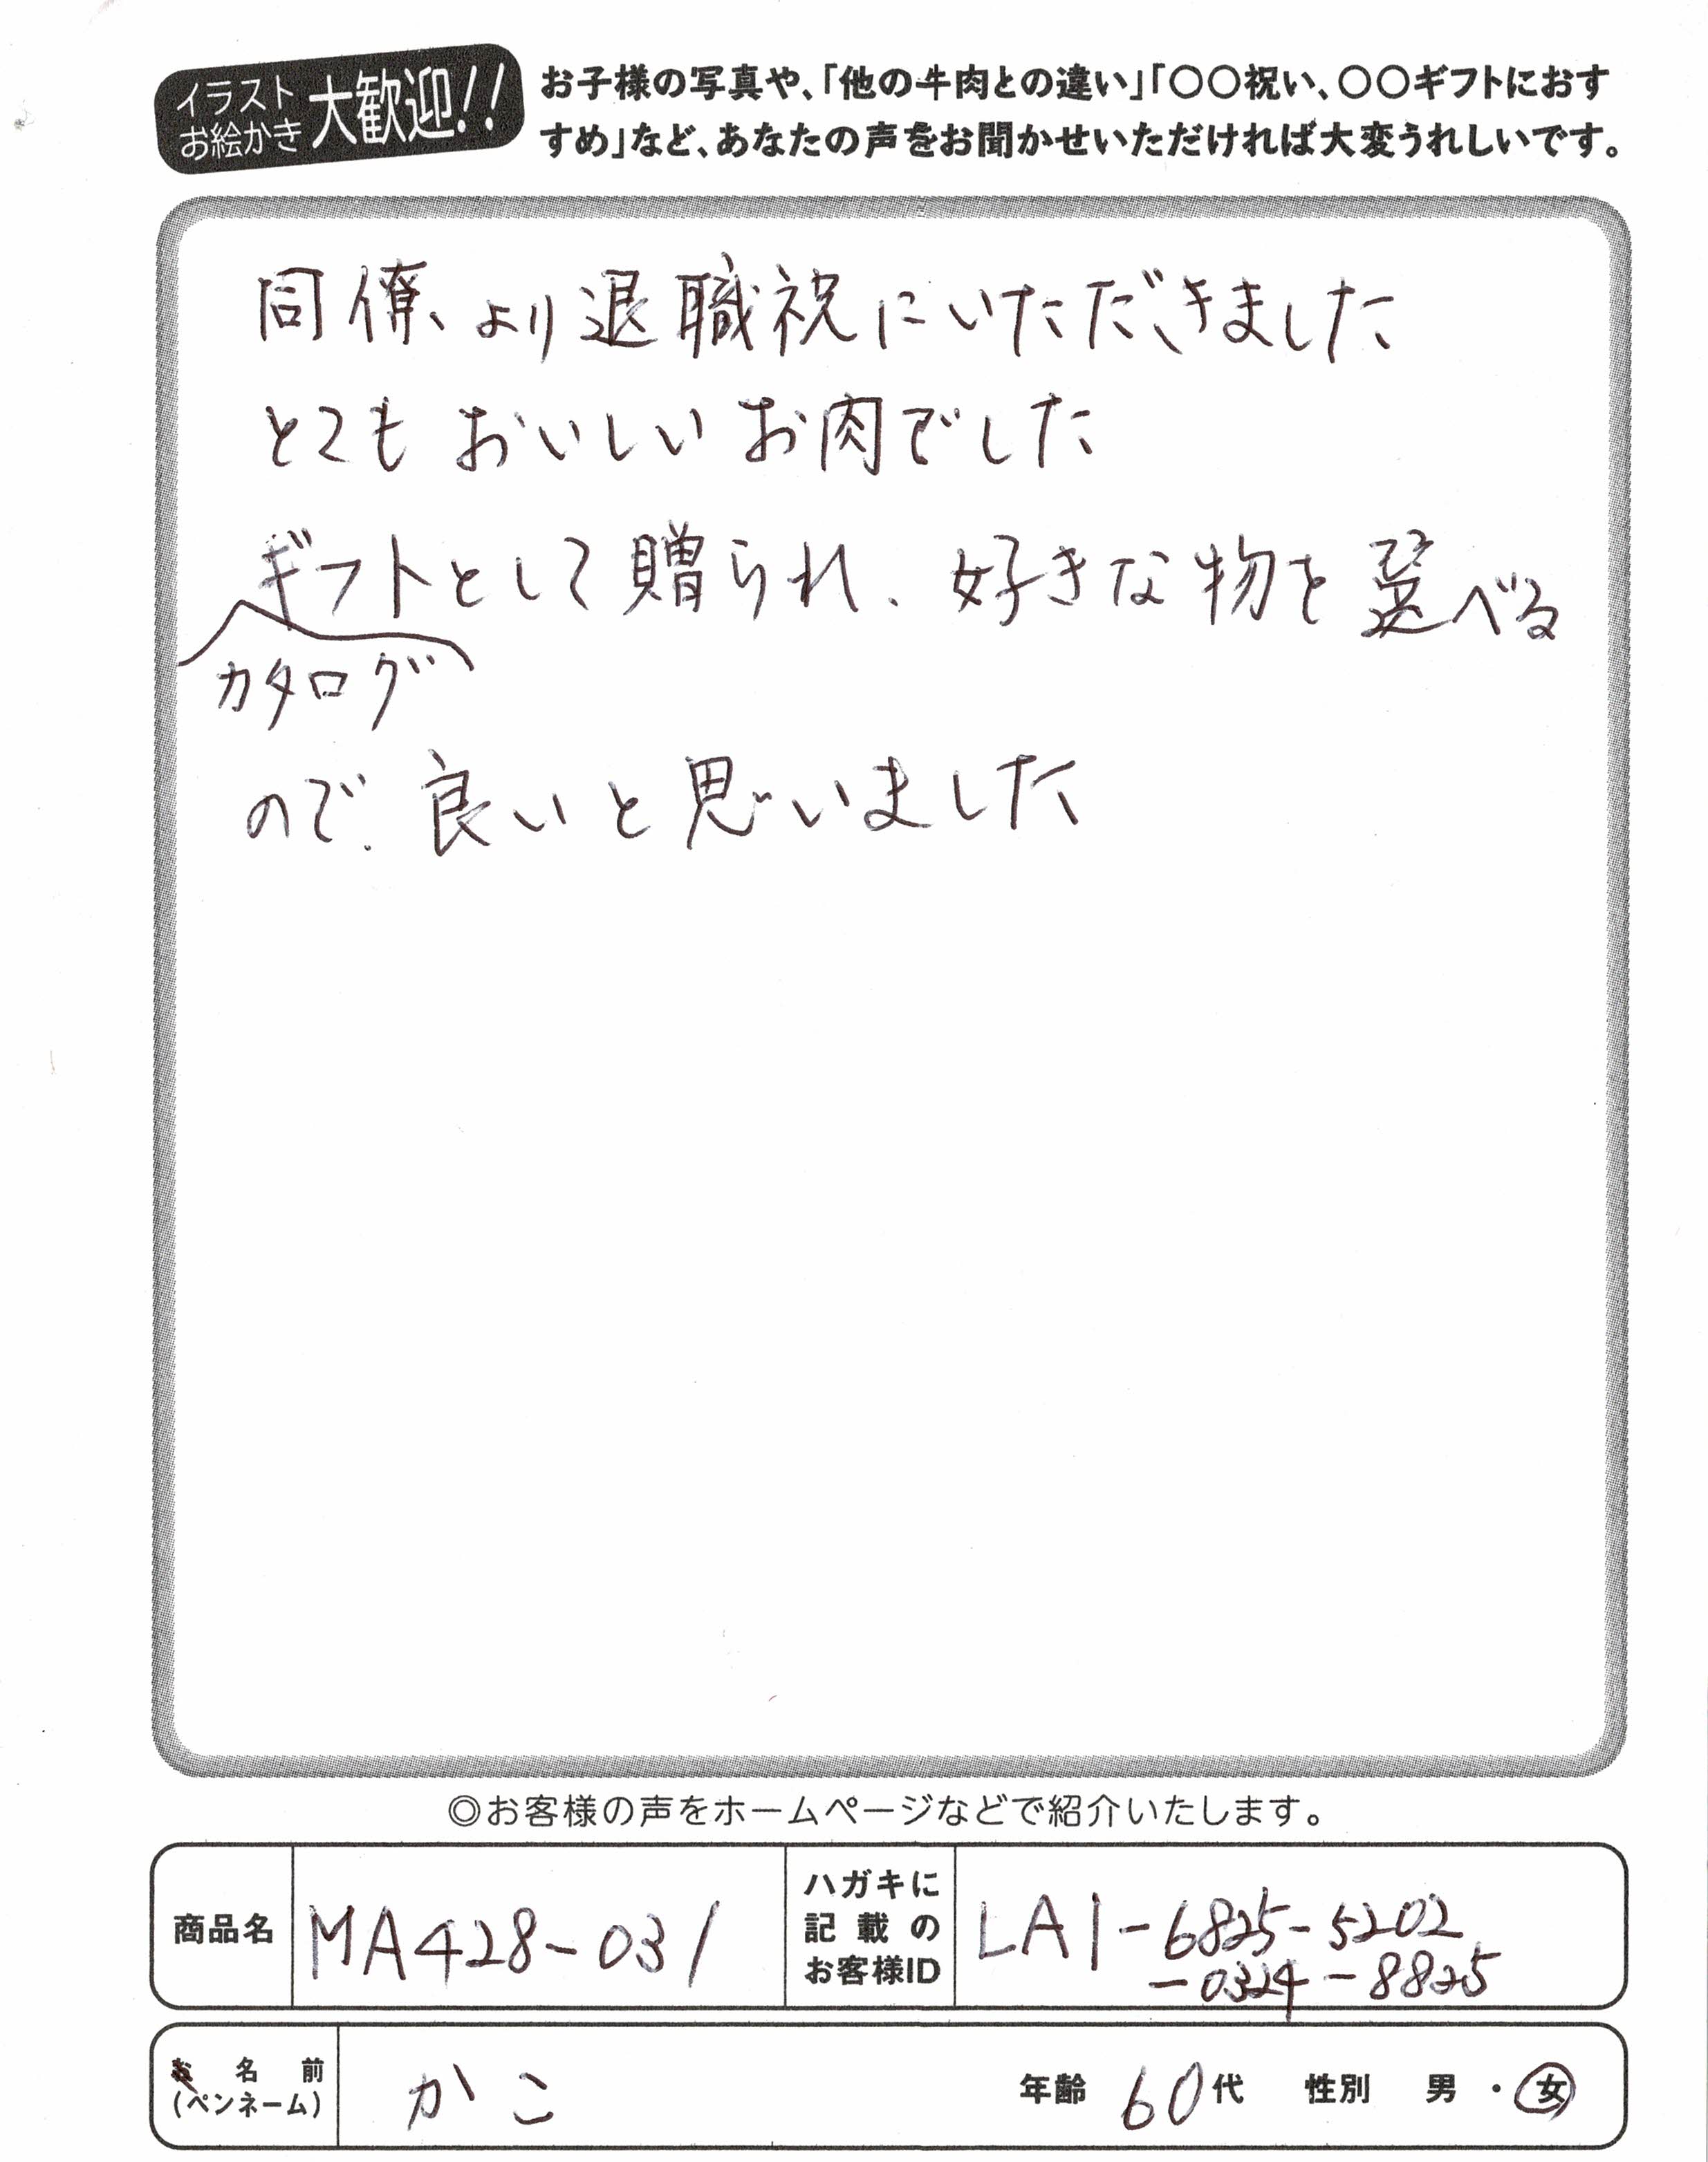 イラスト
お絵かき
大歓迎!!
お子様の写真や、「他の牛肉との違い」「〇〇祝い、〇〇ギフトにおす
すめ」など、あなたの声をお聞かせいただければ大変うれしいです。
同僚、より退職祝にいただきました
とてもおいしいお肉でした
ギフトとして贈られ、好きな物を選べる
カタログ
ので、良いと思いました
◎お客様の声をホームページなどで紹介いたします。
商品名
MA428-031
ハガキに
記載の
お客様ID
LA1-6825-5202
-0324-8825
お名前
(ペンネーム)
かこ
年齢 60代 性別 男・女